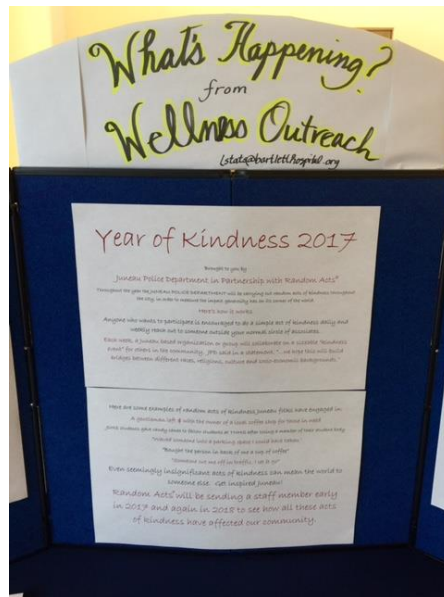 What's Happening?
from
Wellness Outreach
lstats@bartletthospital.org
Year of Kindness 2017
Brought to you by
Juneau Police Department in Partnership with Random Acts®
Throughout the year the JUNEAU POLICE DEPARTMENT will be carrying out random acts of kindness throughout
the city in order to measure the impact generosity has on its corner of the world.
Here's how it works
Anyone who wants to participate is encouraged to do a simple act of kindness daily and
weekly reach out to someone outside your normal circle of associates.
Each week, a Juneau based organization or group will collaborate on a suitable "kindness
event" for others in the community. JPD said in a statement, "...we hope this will build
bridges between different races, religions, culture and socio-economic backgrounds."
Here are some examples of random acts of kindness Juneau folks have engaged in:
A gentleman left $ with the owner of a local coffee shop for those in need
students after losing a member of their student body
"Waved someone into a parking space I could have taken"
"Bought the person in back of me a cup of coffee"
"Someone cut me off in traffic, I let it go"
Even seemingly insignificant acts of kindness can mean the world to
someone else. Get inspired Juneau!
Random Acts® will be sending a staff member early
in 2017 and again in 2018 to see how all these acts
of kindness have affected our community.